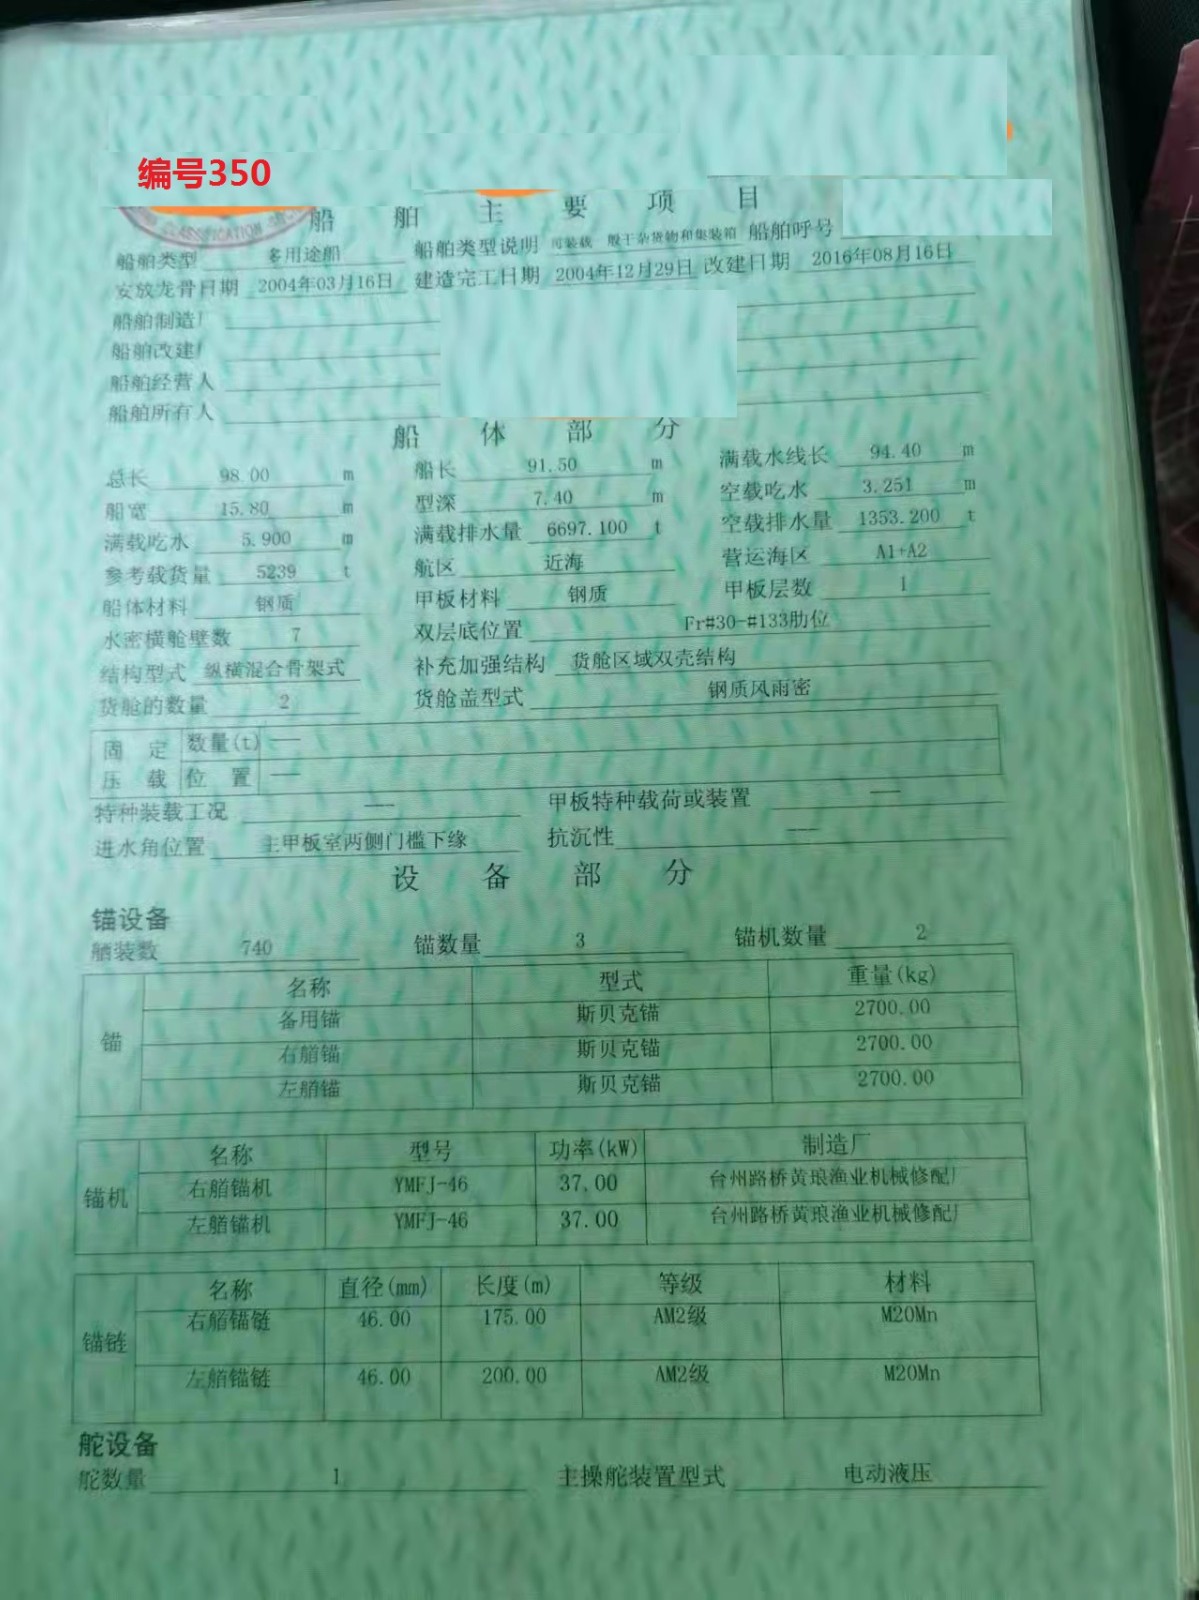 编号350
CLASSIFICATION
船舶主要项目
船舶类型 多用途船 船舶类型说明 可装载一般干杂货物和集装箱 船舶呼号
安放龙骨日期 2004年03月16日 建造完工日期 2004年12月29日 改建日期 2016年08月16日
船舶制造厂
船舶改建厂
船舶经营人
船舶所有人
船体部分
总长 98.00 m 船长 91.50 m 满载水线长 94.40 m
船宽 15.80 m 型深 7.40 m 空载吃水 3.251 m
满载吃水 5.900 m 满载排水量 6697.100 t 空载排水量 1353.200 t
参考载货量 5239 t 航区 近海 营运海区 A1+A2
船体材料 钢质 甲板材料 钢质 甲板层数 1
水密横舱壁数 7 双层底位置 Fr#30-#133肋位
结构型式 纵横混合骨架式 补充加强结构 货舱区域双壳结构
货舱的数量 2 货舱盖型式 钢质风雨密
固定 数量(t) ——
压载 位置 ——
特种装载工况 —— 甲板特种载荷或装置 ——
进水角位置 主甲板室两侧门槛下缘 抗沉性 ——
设备部分
锚设备
舾装数 740 锚数量 3 锚机数量 2
名称 型式 重量(kg)
锚 备用锚 斯贝克锚 2700.00
右艏锚 斯贝克锚 2700.00
左艏锚 斯贝克锚 2700.00
名称 型号 功率(kW) 制造厂
锚机 右艏锚机 YMFJ-46 37.00 台州路桥黄琅渔业机械修配厂
左艏锚机 YMFJ-46 37.00 台州路桥黄琅渔业机械修配厂
名称 直径(mm) 长度(m) 等级 材料
锚链 右艏锚链 46.00 175.00 AM2级 M20Mn
左艏锚链 46.00 200.00 AM2级 M20Mn
舵设备
舵数量 1 主操舵装置型式 电动液压